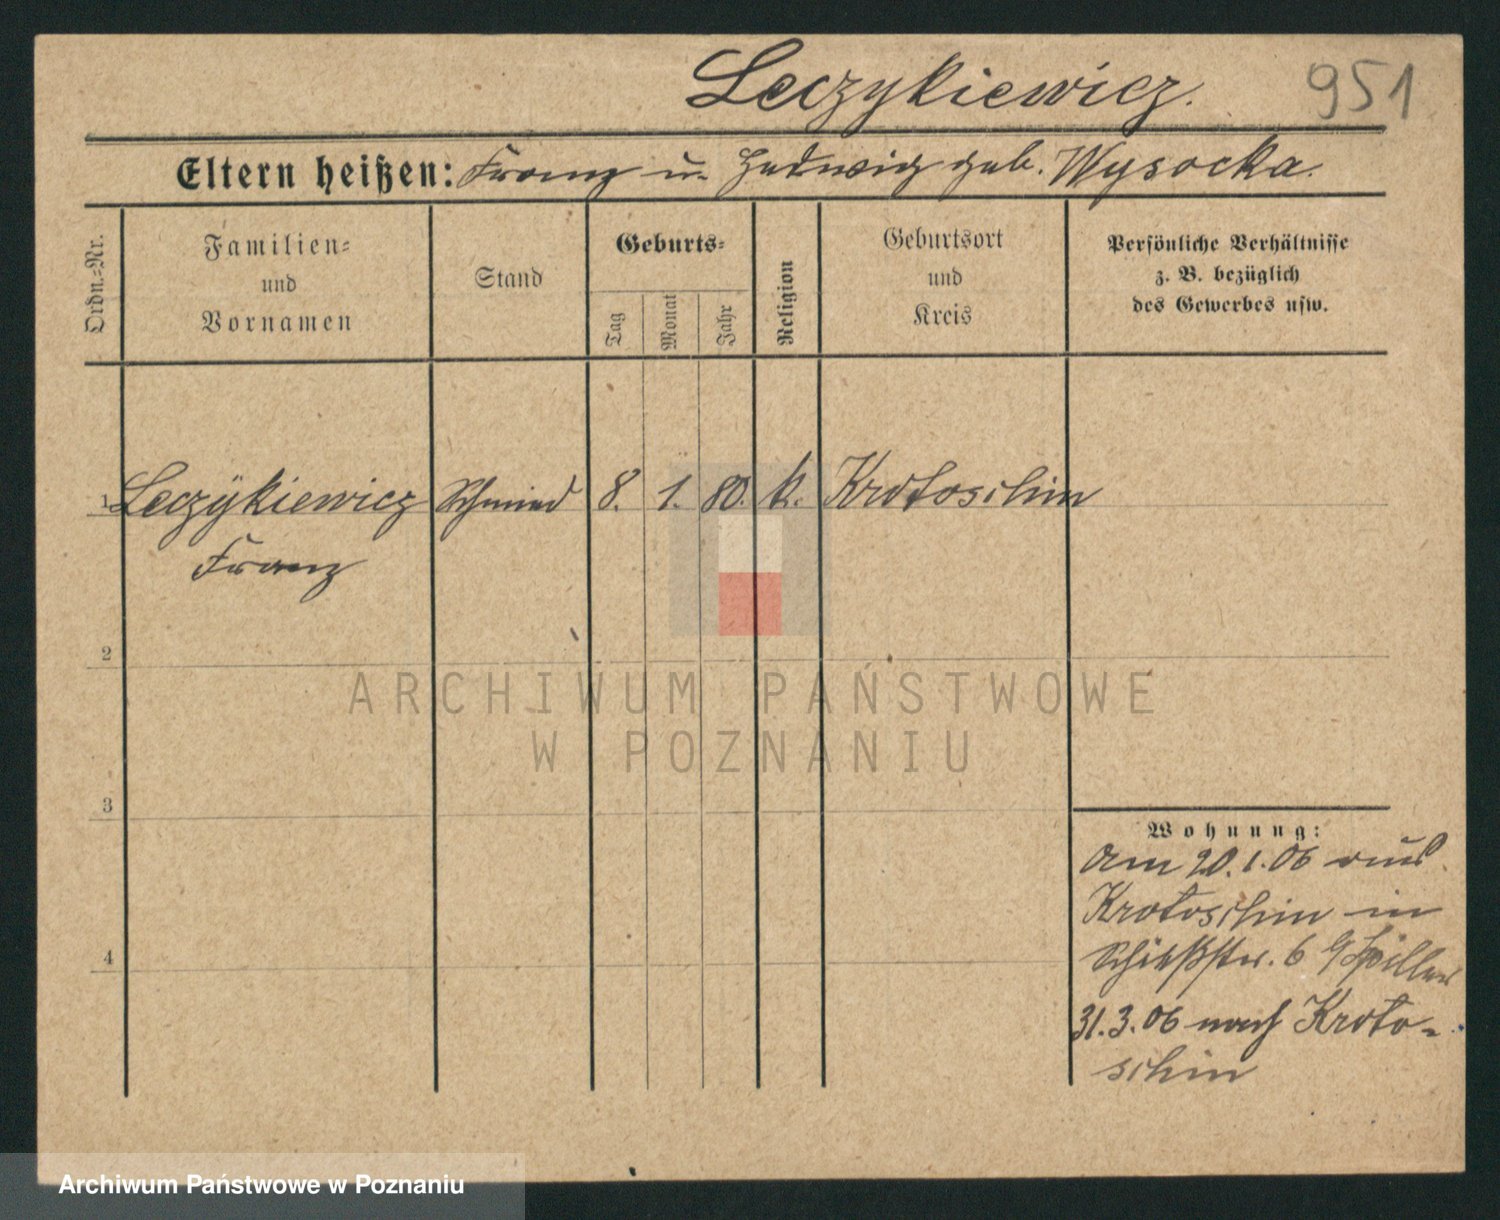 Leczykiewicz.
951
Eltern heißen: Franz u. Hedwig geb. Wysocka.
Ordn.-Nr.
Familien-
und
Vornamen
Stand
Geburts-
Tag
Monat
Jahr
Religion
Geburtsort
und
Kreis
Persönliche Verhältnisse
z. B. bezüglich
des Gewerbes usw.
1 Leczykiewicz Schmied 8. 1. 80. k. Krotoschin
Franz
2
ARCHIWUM PAŃSTWOWE
W POZNANIU
3
Wohnung:
Am 20.1.06 aus
Krotoschin in
Schießstr. 6
4
31.3.06 nach Kroto-
schin
Archiwum Państwowe w Poznaniu